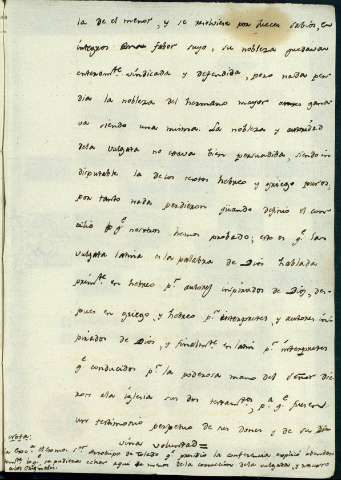 la de el menor, y se resolviera por Jueces sabios, e
integros favor suyo, su nobleza quedava
enteramte vindicada y defendida, pero nada per
dia la nobleza del hermano mayor antes gana
va siendo una misma. La nobleza y autoridad
dela vulgata no estava bien persuadida, siendo in
disputable la de los textos hebreo y griego puros,
por tanto nada perdieron quando definio el con
cilio lo qe nosotros hemos probado; esto es qe la
vulgata latina es la palabra de Dios hablada
primte en hebreo pr autores inspirados de Dios, des-
pues en griego, y hebreo pr interpretes, y autores ins
pirados de Dios, y finalmte en latin pr interpretes
qe conducidos pr la poderosa mano del Señor die
ron ala iglesia sus dos testamtos, pa qe fuesen
un testimonio perpetuo de sus dones y de su Div
vina voluntad=
Nota:
Arzobispo de Toledo qe presidio la conferencia explicó
se pudiera echar agua de menos de la correccion dela vulgata, y recurso
alos originales.